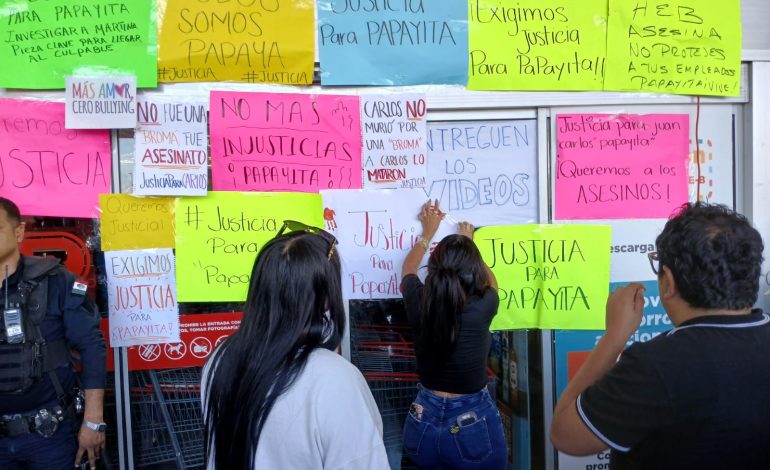 PARA PAPAYITA
INVESTIGAR A MARTINA
PIEZA CLAVE PARA LLEGAR
AL CULPABLE
SOMOS
PAPAYA
#Justicia #Justicia
Justicia
Para PAPAYITA
¡Exigimos
Justicia
Para PaPayita!!
HEB
ASESINA
NO PROTEJES
A TUS EMPLEADOS
PAPAYITA VIVE!
MÁS AMOR,
CERO BULLYING
NO FUE UNA
"BROMA" FUE
ASESINATO
JUSTICIA PARA CARLOS
NO MAS
INJUSTICIAS
¡PAPAYITA!
CARLOS NO
MURIÓ POR
UNA "BROMA"
A CARLOS LO
MATARON
JUSTICIA
ENTREGUEN
LOS
VIDEOS
Justicia para juan
carlos "papayita"
¡Queremos a los
ASESINOS!
Queremos
JUSTICIA
Queremos
Justicia!
#Justicia
Para
EXIGIMOS
JUSTICIA
PARA
PAPAYITA!
Justicia
Para
JUSTICIA
PARA
PAPAYITA
descarga
PROHIBIDA LA ENTRADA CON
TOMAR FOTOGRAFÍAS